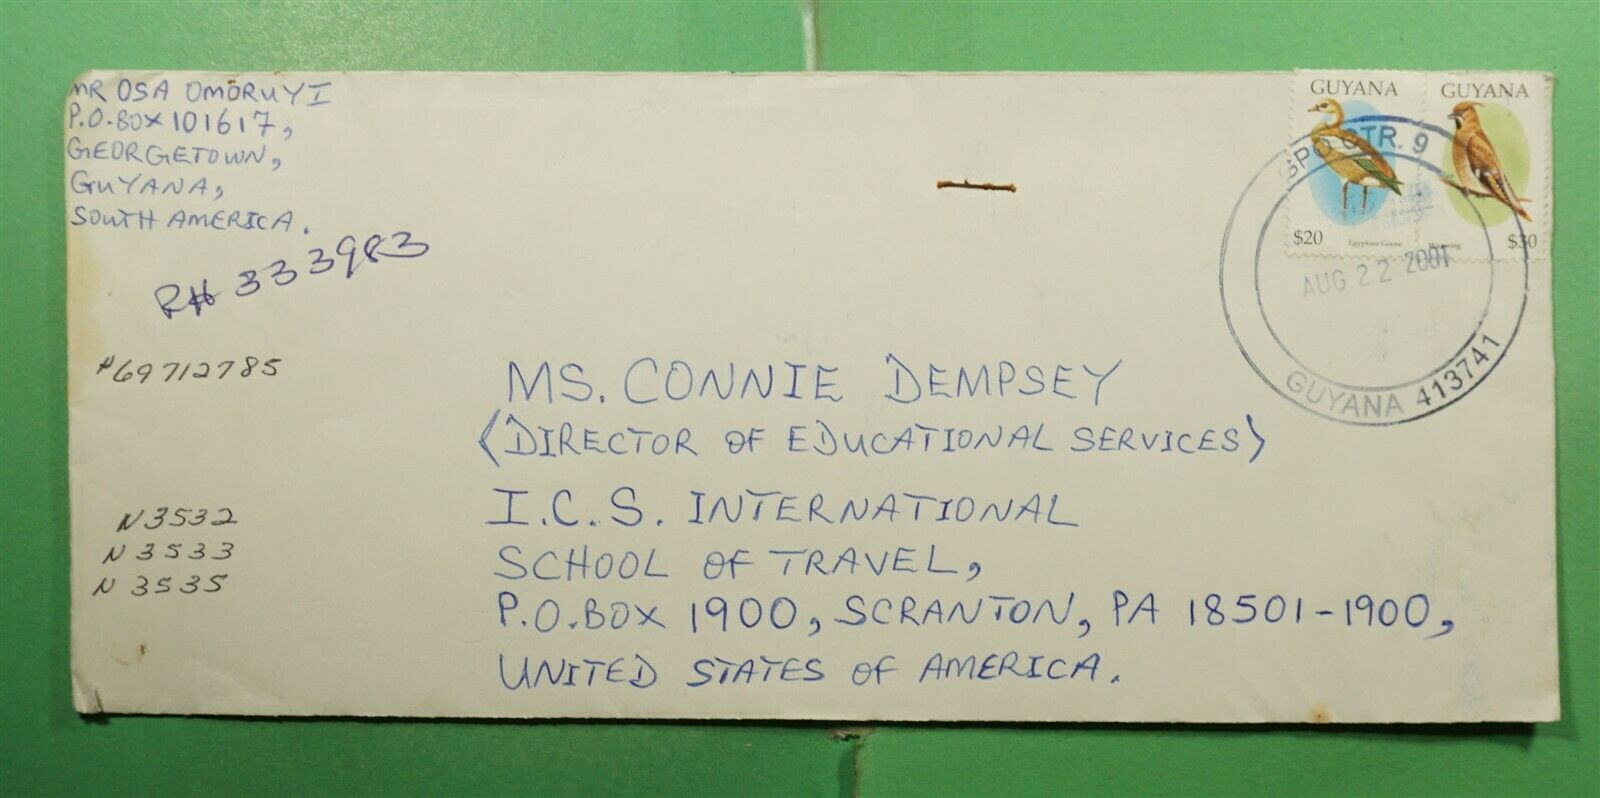 MR OSA OMORUYI
P.O. BOX 101617,
GEORGETOWN,
GUYANA,
SOUTH AMERICA.
R# 333983
#69712785
N3532
N3533
N3535
GUYANA
$20
Egyptian Goose
GUYANA
$30
GPO CTR. 9
AUG 22 2001
GUYANA 413741
MS. CONNIE DEMPSEY
(DIRECTOR OF EDUCATIONAL SERVICES)
I.C.S. INTERNATIONAL
SCHOOL OF TRAVEL,
P.O. BOX 1900, SCRANTON, PA 18501-1900,
UNITED STATES OF AMERICA.